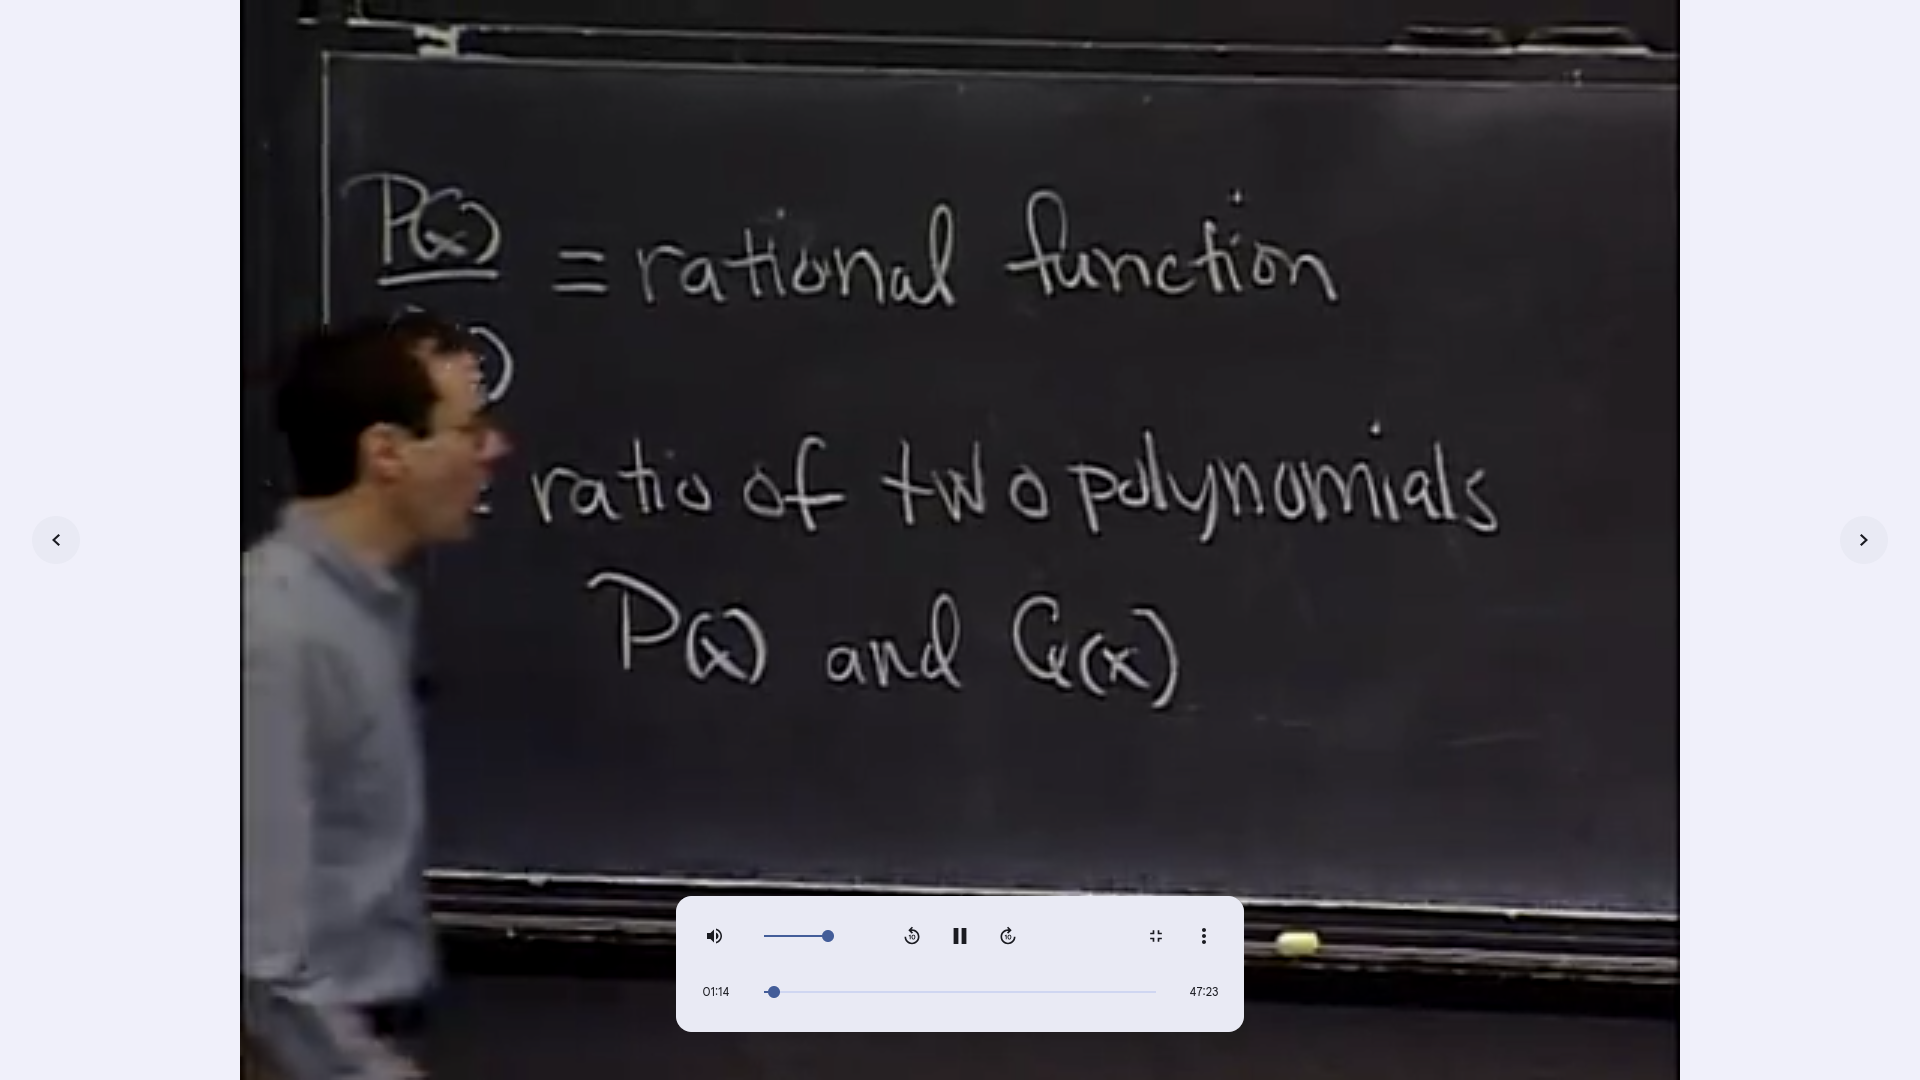 P(x)
= rational function
ratio of two polynomials
P(x) and Q(x)
10
10
01:14
47:23